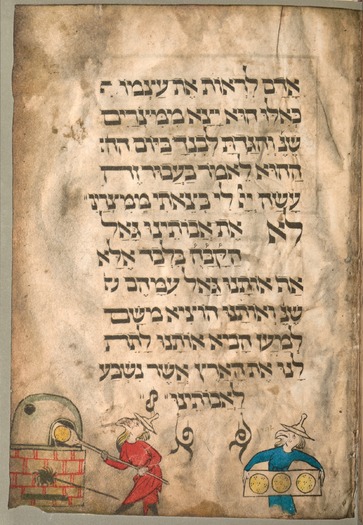 אדם לראות את עצמו כ
כאלו הוא יצא ממצרים
שנ׳ והגדת לבנך ביום
ההוא לאמר בעבור זה
עשה יי לי בצאתי ממצרי׳
לא את אבותינו גאל
הקבה בלבד אלא
אף אותנו גאל עמהם ש
שנ׳ ואותנו הוציא משם
למען הביא אותנו לתת
לנו את הארץ אשר נשבע
לאבותינו